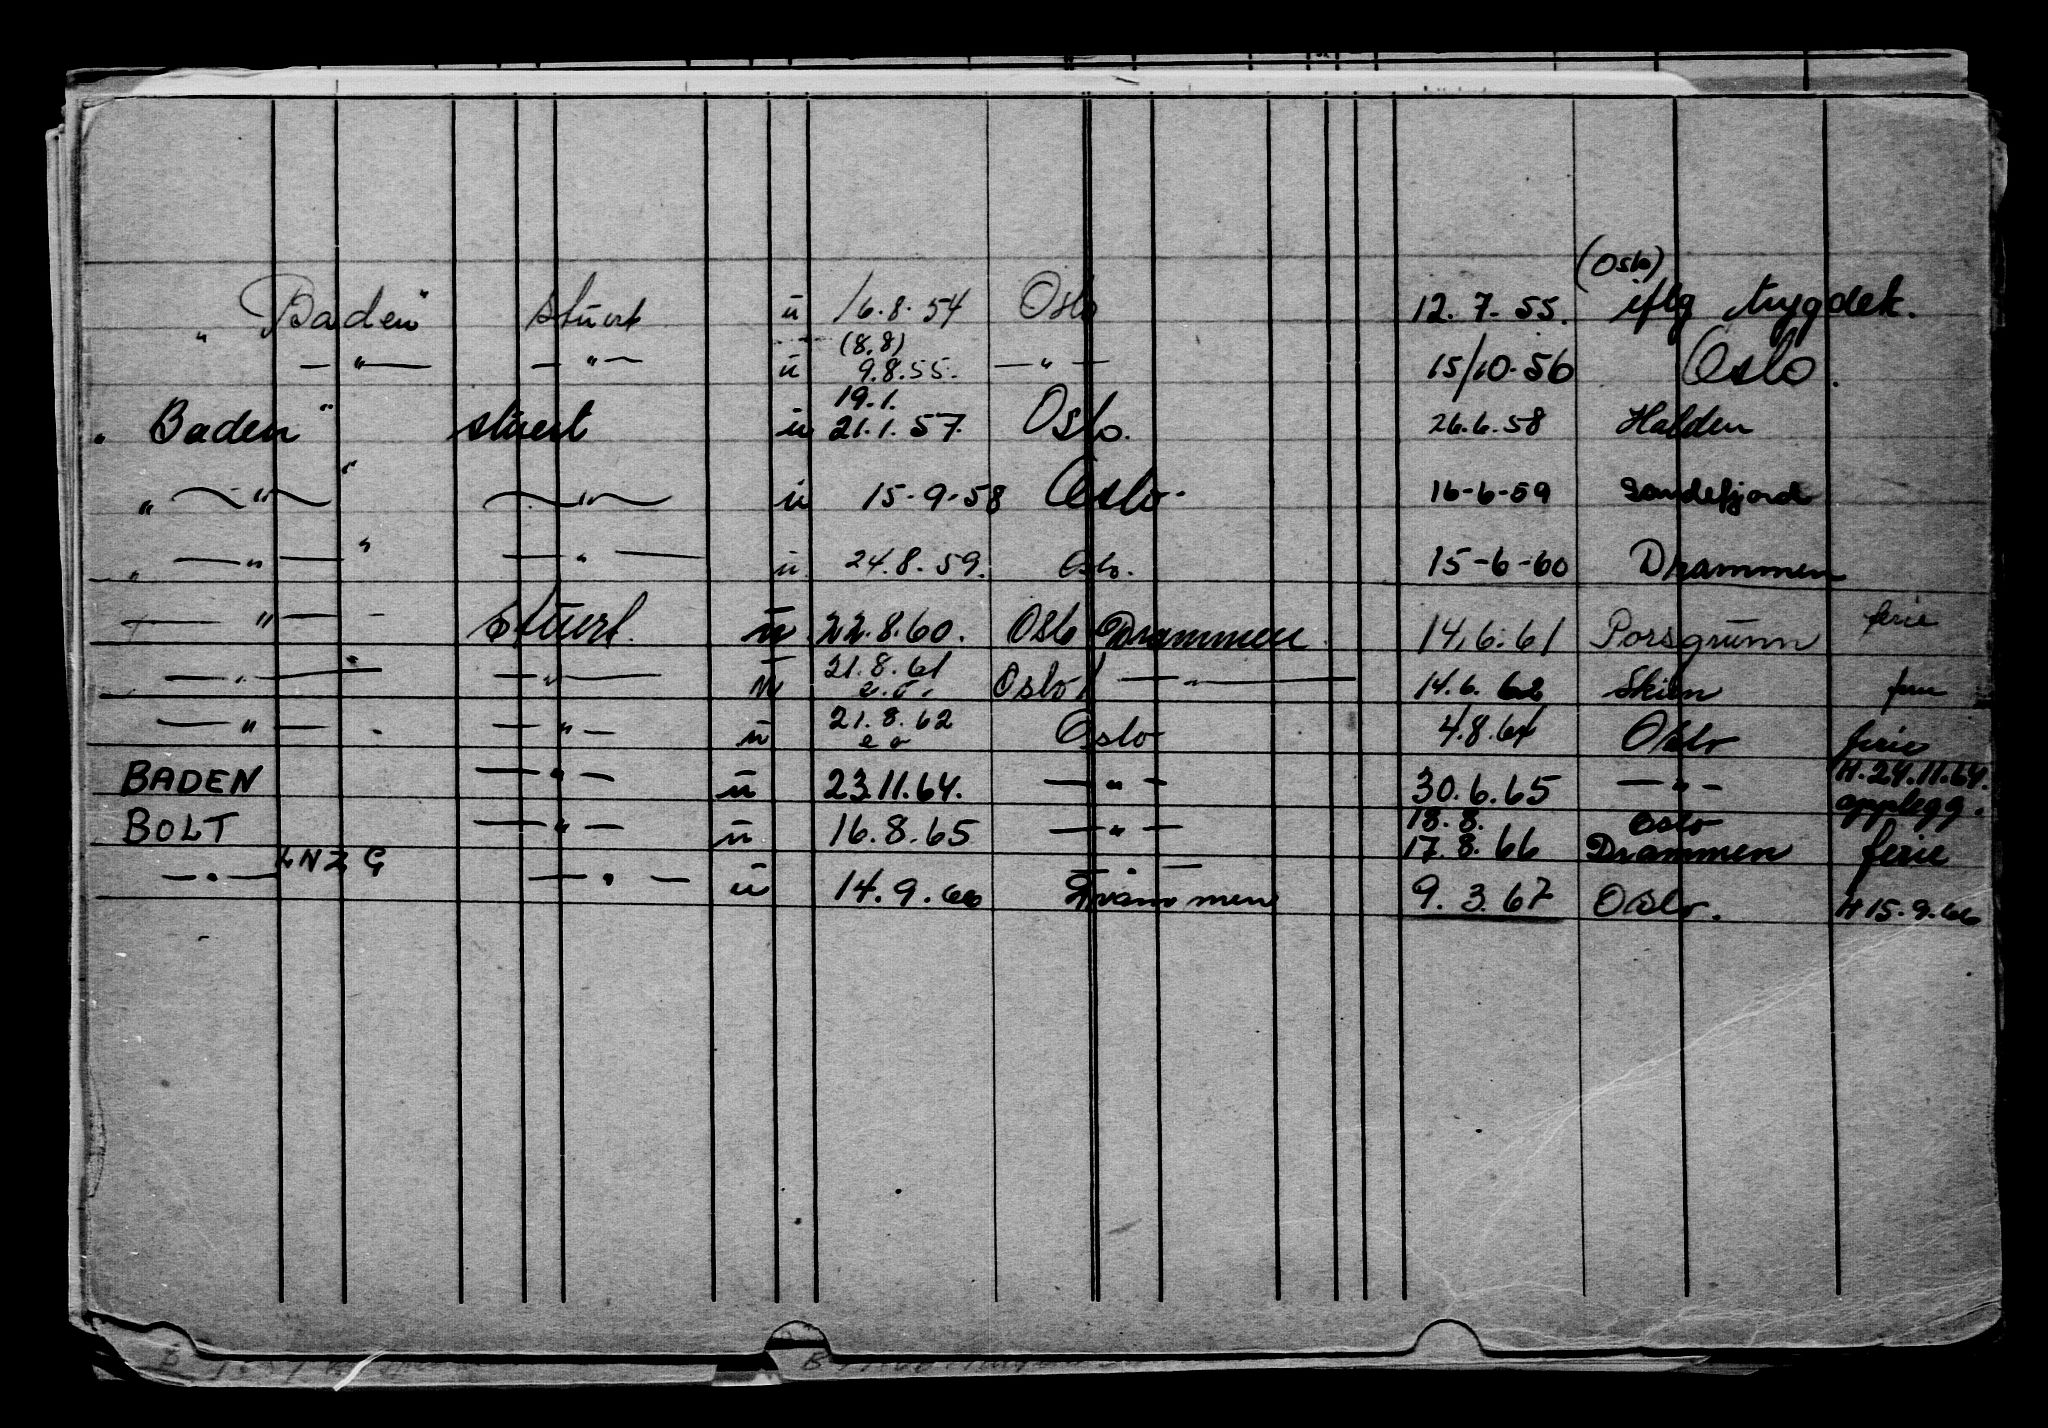 (Oslo)
"Baden" stuert u 16.8.54 Oslo 12.7.55. iflg trygdek.
(8.8)
— " — — " — u 9.8.55. — " — 15/10-56 Oslo.
19.1.
"Baden" stuert u 21.1.57. Oslo. 26.6.58 Halden
" — " — " — " — u 15-9-58 Oslo. 16-6-59 Sandefjord
" — " — " — " — u 24.8.59. Oslo. 15-6-60 Drammen
— " — stuert. u 22.8.60. Oslo Drammen. 14.6.61 Porsgrunn ferie
— " — — " — u 21.8.61 Oslo/ — " — 14.6.62 Skien ferie
e.o.
— " — — " — u 21.8.62 Oslo 4.8.64 Oslo ferie
e o
BADEN — " — u 23.11.64. — " — 30.6.65 — " — H.24.11.64.
opplegg.
BOLT — " — u 16.8.65 — " — 18.8. Oslo
17.8.66 Drammen ferie
LNZG
— " — — " — u 14.9.66 Drammen 9.3.67 Oslo. H 15.9.66